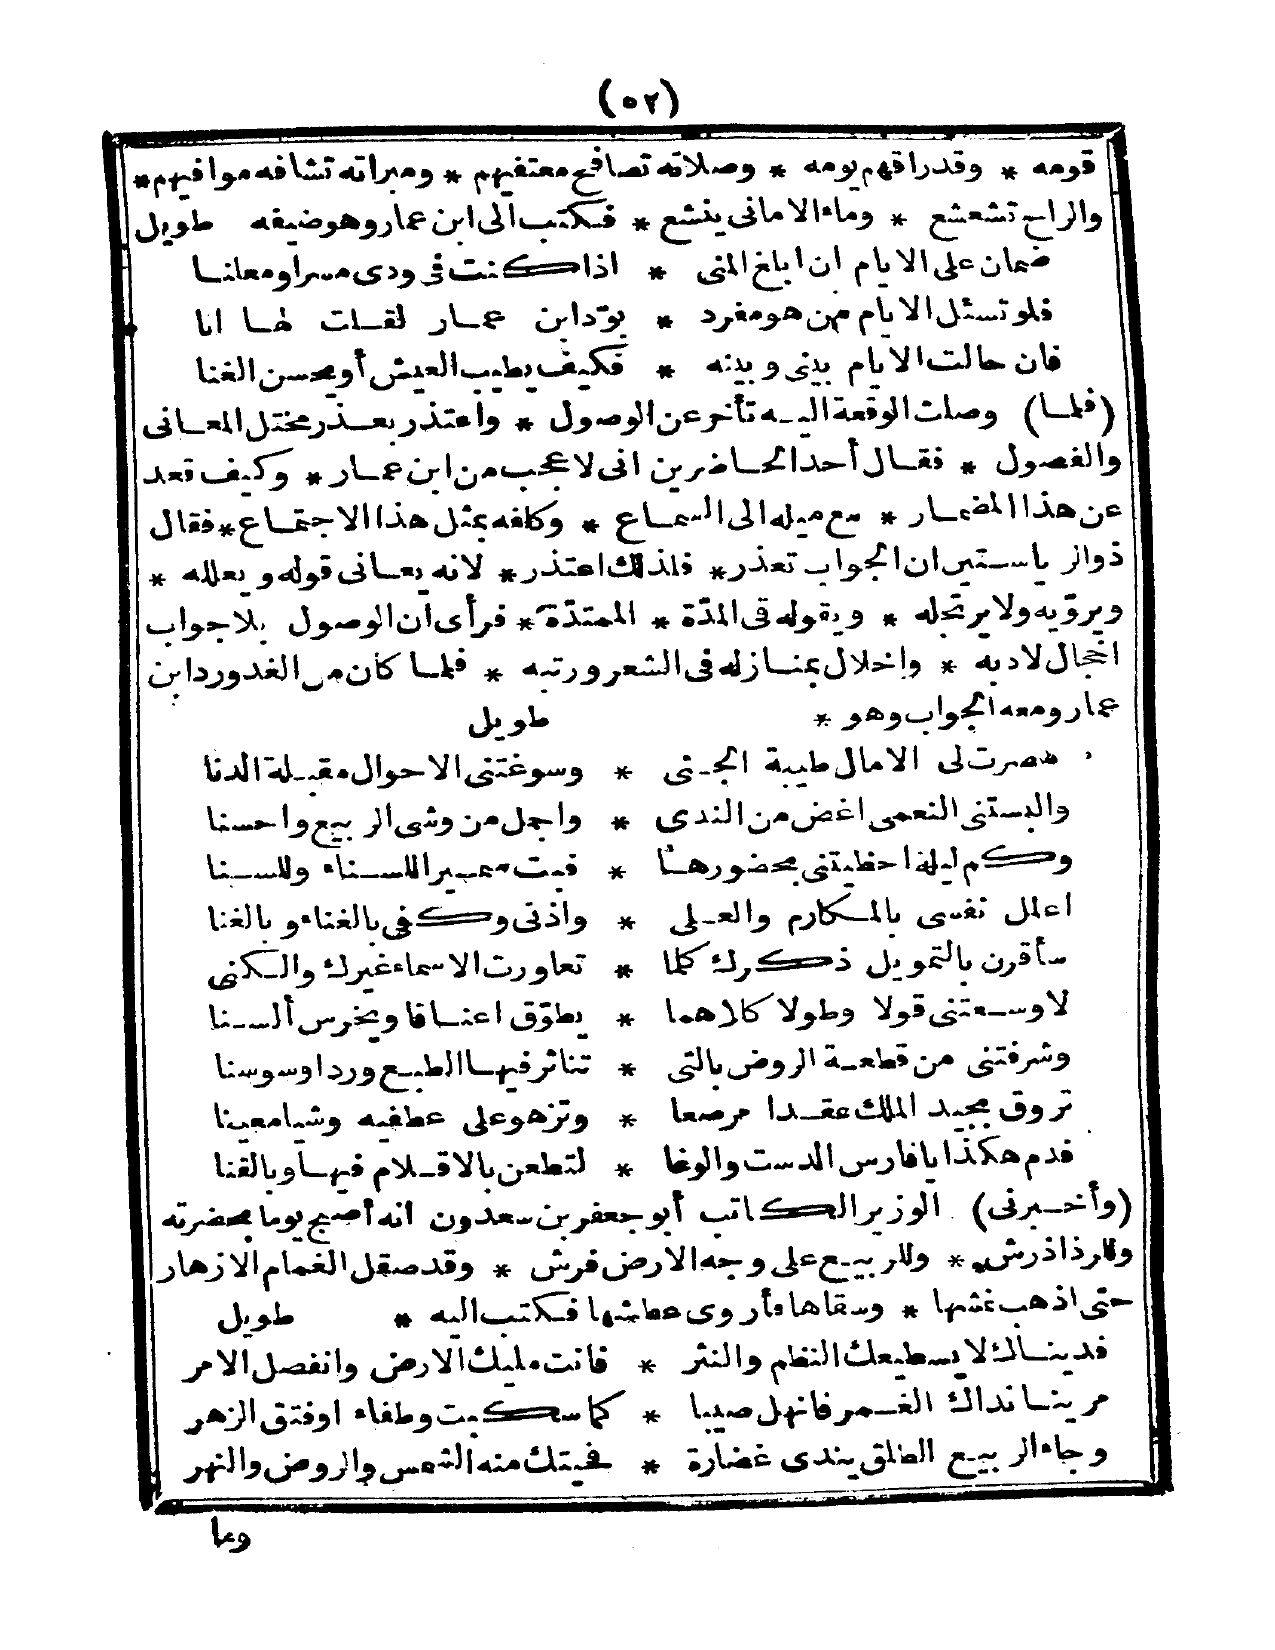 (٥٢)
قومه * وقد راقهم يومه * وصلاته تصافح معتفيهم * ومبراته تشافه موافيهم *
والراح تشعشع * وماء الامانى ينشع * فكتب الى ابن عمار وهو ضيفه طويل
ضمان على الايام ان ابلغ المنى * اذا كنت فى ودى مسرا ومعلنا
فلو تسئل الايام من هو مفرد * بودّ ابن عمار لقلت لها انا
فان حالت الايام بينى وبينه * فكيف يطيب العيش أو يحسن الغنا
(فلما) وصلت الرقعة اليه تأخر عن الوصول * واعتذر بعذر مختل المعانى
والفصول * فقال أحد الحاضرين انى لاعجب من ابن عمار * وكيف قعد
عن هذا المضمار * مع ميله الى السماع * وكلفه بمثل هذا الاجتماع * فقال
ذو الرياستين ان الجواب تعذر * فلذلك اعتذر * لانه يعانى قوله ويعلله *
ويروّيه ولا يرتجله * ويقوله فى المدّة * الممتدّة * فرأى ان الوصول بلا جواب
اخجال لادبه * واخلال بمنازله فى الشعر ورتبه * فلما كان من الغد ورد ابن
عمار ومعه الجواب وهو * طويل
هصرت لى الامال طيبة الجنى * وسوغتنى الاحوال مقبلة الدنا
والبستنى النعمى اغض من الندى * واجمل من وشى الربيع واحسنا
وكم ليلة احظيتنى بحضورها * فبت سميرا للسناء وللسنا
اعلل نفسى بالمكارم والعلى * واذنى وكفى بالغناء وبالغنا
سأقرن بالتمويل ذكرك كلما * تعاورت الاسماء غيرك والكنى
لاوسعتنى قولا وطولا كلاهما * يطوّق اعناقا ويخرس ألسنا
وشرفتنى من قطعة الروض بالتى * تناثر فيها الطبع وردا وسوسنا
تروق بجيد الملك عقدا مرصعا * وتزهو على عطفيه وشيا معينا
فدم هكذا يا فارس الدست والوغا * لتطعن بالاقلام فيها وبالقنا
(وأخبرنى) الوزير الكاتب أبو جعفر بن سعدون انه أصبح يوما بحضرته
وللرذاذ رش * وللربيع على وجه الارض فرش * وقد صقل الغمام الازهار
حتى اذهب غشها * وسقاها فأروى عطشها فكتب اليه * طويل
فديناك لا يسطيعك النظم والنثر * فانت مليك الارض وانفصل الامر
مرينا نداك الغمر فانهل صيبا * كما سكبت وطفاء اوفتق الزهر
وجاء الربيع الطلق يندى غضارة * فحيتك منه الشمس والروض والنهر
وما